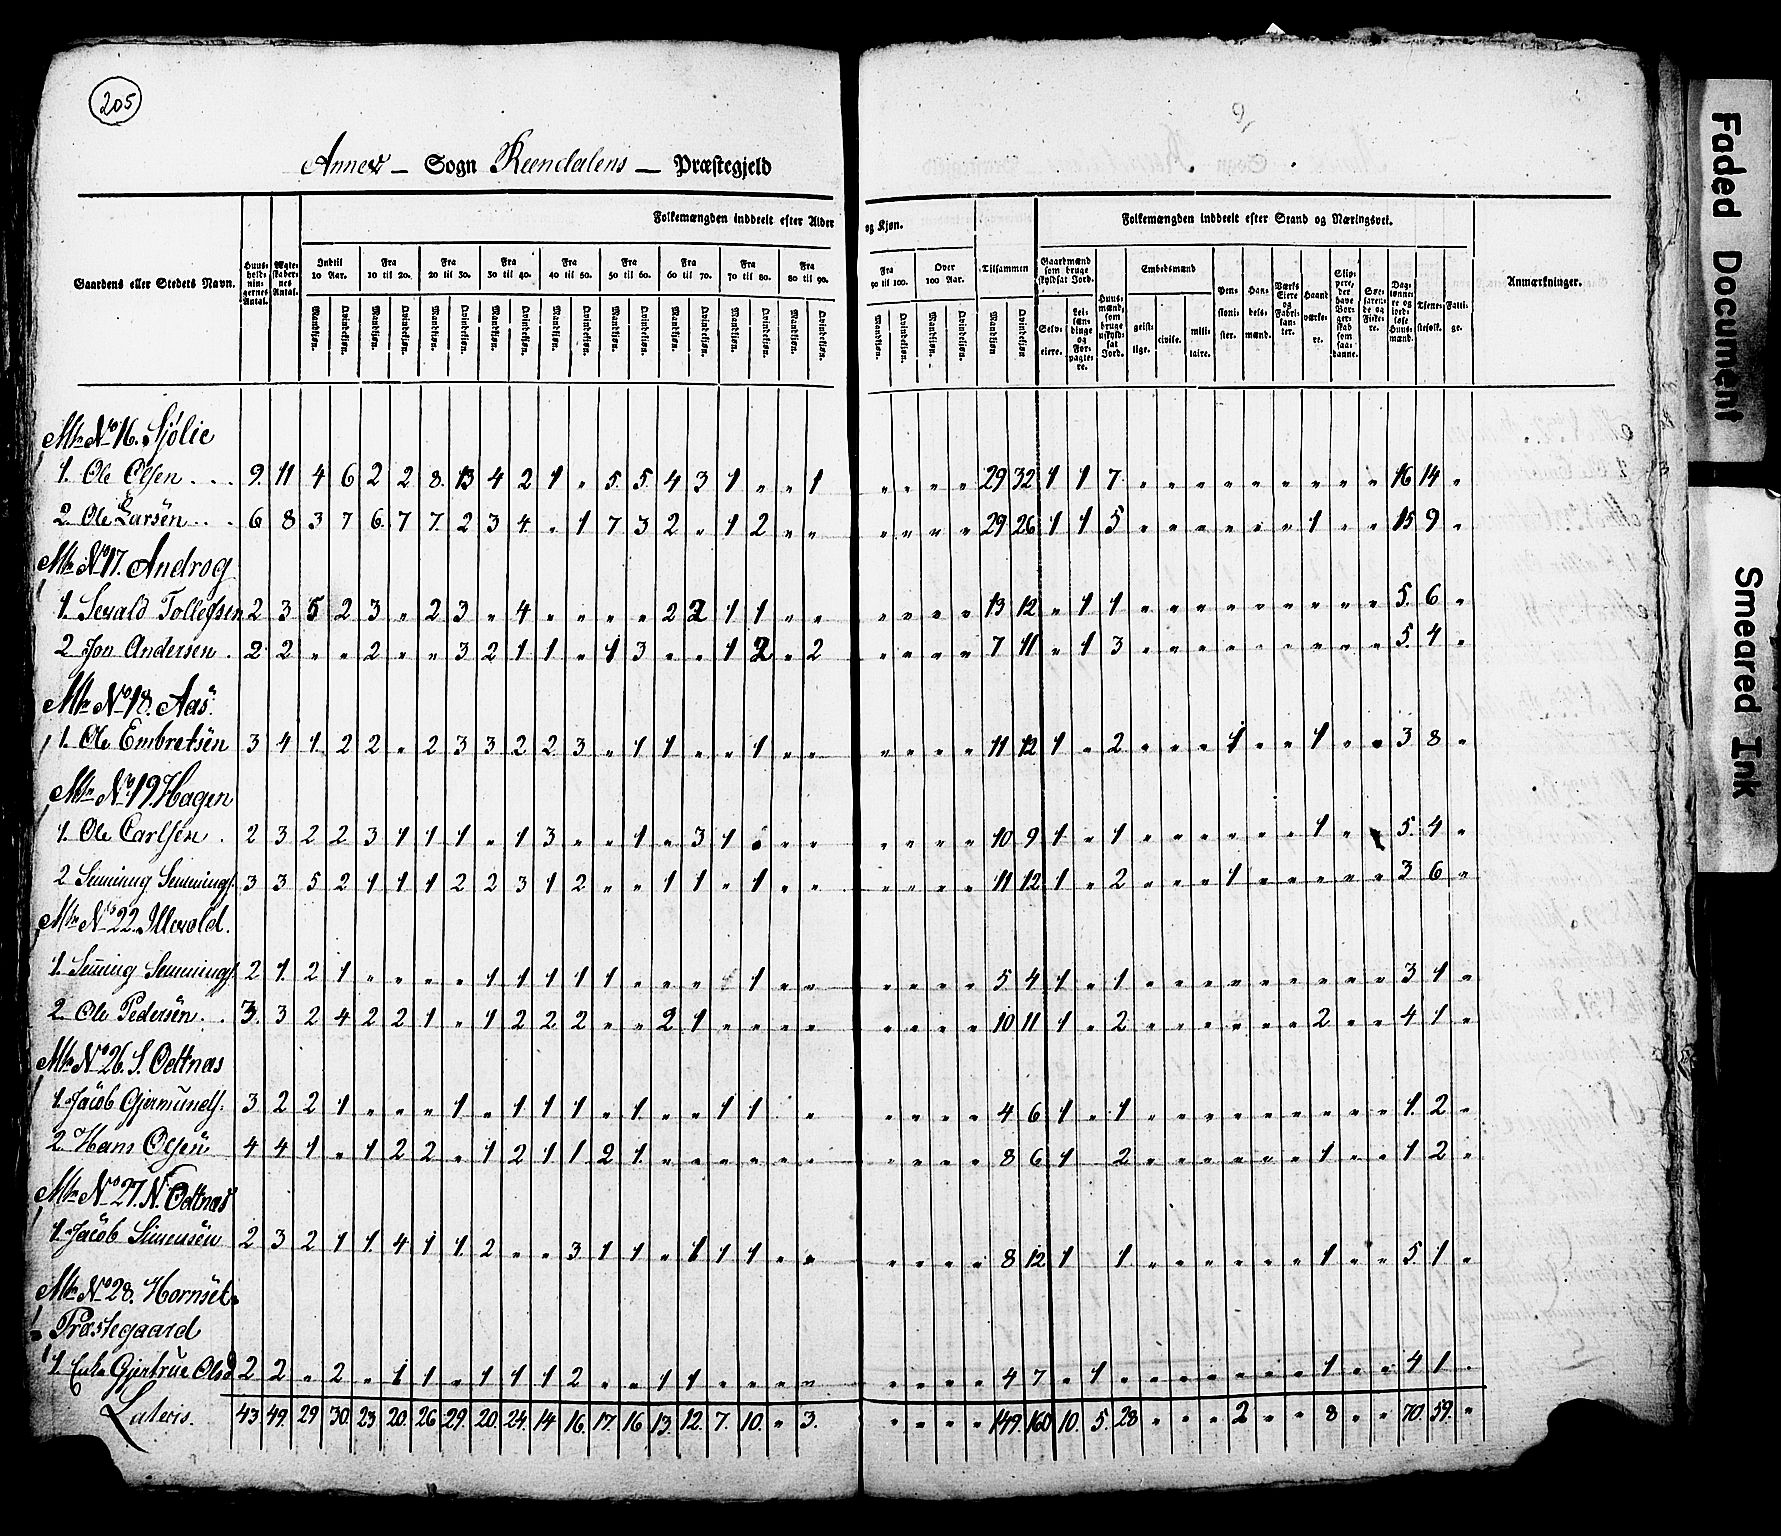 205
Annex – Sogn Reendalens – Præstegjeld
Gaardens eller Stedets Navn.
Huus-holdningernes Antal.
Ægteskabernes Antal.
Folkemængden inddeelt efter Alder og Kjøn.
Indtil 10 Aar. Fra 10 til 20. Fra 20 til 30. Fra 30 til 40. Fra 40 til 50. Fra 50 til 60. Fra 60 til 70. Fra 70 til 80. Fra 80 til 90. Fra 90 til 100. Over 100 Aar.
Mandkjøn. Qvindekjøn.
Tilsammen
Mandkjøn Qvindekjøn
Folkemængden inddeelt efter Stand og Næringsvei.
Gaardmænd som bruge skyldsat Jord.
Selveiere. Leilændinge og Forpagtere.
Huusmænd, som bruge uskyldsat Jord.
Embedsmænd
geistlige. civile. militaire.
Pensionister. Handelsmænd. Værks Eiere og Fabrikanter. Haandværkere.
Slippere, der have Borgerskab som saadanne.
Søefarende og Fiskere. Daglønnere og jordløse Huusmænd. Tjenestefolk. Fattige.
Anmærkninger.
Mtr No 16. Sjølie
1. Ole Olsen . . . 9. 11 4 6 2 2 8. 13 4 2 1 " 5. 5. 4 3 1 " " 1 " " " " 29 32 1 1 7 " " " " " " " " " 16 14 "
2. Ole Larsen . . . 6 8 3 7 6. 7 7. 2 3 4. " 1 7 3 2 " 1 2 " " " " " " 29 26 1 1 5 " " " " " " 1 " " 15 9 "
Mtr No 17. Androg
1. Sevald Tollefsen 2 3 5 2 3 " 2 3 " 4 " " " " 2 2 1 1 " " " " " " 13 12 " 1 1 " " " " " " " " " 5. 6 "
2 Jon Andersen . 2 2 " " 2 " " 3 2 1 1 " 1 3 " " 1 2 " 2 " " " " 7 11 " 1 3 " " " " " " " " " 5. 4 "
Mtr No 18. Aas
1. Ole Embretsen 3 4 1. 2 2 " 2 3 3 2 2 3 " 1 1 " " 1 " " " " " " 11 12 1 " 2 " " " 1 " " 1 " " 3 8 "
Mtr No 19 Hagen
1. Ole Carlsen . 2 3 2 2 3 1 1 1 " 1 3 " " 1 " 3 1 " " " " " " " 10 9 1 " 1 " " " " " " 1 " 5. 4 "
2 Semming Semmings. 3 3 5 2 1 1 1 2 2 3 1 2 " " 1 1 " 1 " " " " " " 11 12 1 " 2 " " " 1 " " " " " 3 6 "
Mtr No 22. Illevold.
1. Semming Semmings. 2 1. 2 1 " " " " 1 1 1 1 1 " " " 1 " " " " " " 5 4 1 " 1 " " " " " " " " " 3 1 "
2. Ole Pedersen . . 3. 3 2 4 2 2 1 " 1 2 2 2 " " 2 1 " " " " " " " " 10 11 1 " 2 " " " " " " 2 " " 4 1 "
Mtr No 26. S. Oettnæs
1. Jacob Gjermunds. 3 2 2 1 " " " 1 " 1 1 1 " 1 " " 1 1 " " " " " 4 6 1 " 1 " " " " " " " " " 1 2 "
2. Hans Olsen 4 4 1 " 1 2 2 " 1 2 1 1 2 1 " " " " " " " " " " 8 6 1 2 " " " " " " 1 " " 1 2 "
Mtr No 27. N. Oettnæs
1. Jacob Simensen 2 3 2 1 1. 4 1 1 2 " " 3 1 1 " 1 1 1 " " " " " " 8 12 1 1 " " " " " " 1 " " 5. 1 "
Mtr No 28. Hornset
Præstegaard
1. Enke Gjertrue Olsd 2 2 " 2 " 1 1 " 1 1 1 2 " " 1 1 " " " " " " " " 4 7 " 1 " " " " " " " 1 " " 4 1 "
Lateris. 43. 49. 29 30. 23 20. 26 29. 20. 24. 14 16. 17. 16 13. 12. 7. 10. " 3. " " " " 149. 160 10. 5. 28 " " " 2 " " 8 " " 70. 59. "
Faded Document
Smeared Ink